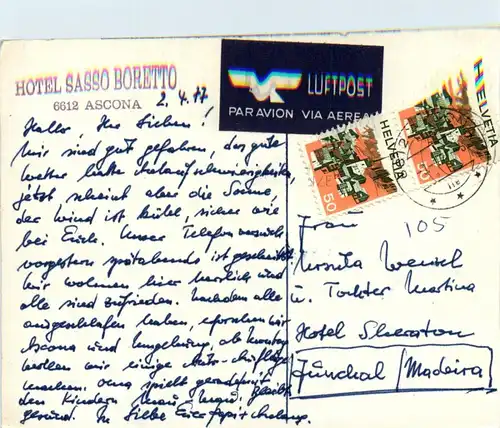 HOTEL SASSO BORETTO
6612 ASCONA
2.4.77
LUFTPOST
PAR AVION VIA AEREA
HELVETIA
50
HELVETIA
50
105
Hallo, Ihr Lieben!
Wir sind gut gefahren, das gute
Wetter hatte
jetzt scheint aber die Sonne,
der Wind ist kühl, sicher wie
bei Euch. Unser Telefonversuch
vorgestern spätabends ist gescheitert
Wir wohnen hier herrlich und
alle sind zufrieden. Nachdem alle
ausgeschlafen haben, erforschen wir
Ascona und Umgebung, ab Montag
wollen wir einige Auto-Ausflüge
machen. Oma spielt gerade mit
den Kindern Mau-Mau. Bleibt
gesund. In Liebe Eure
Frau
Ursula Wensel
u. Tochter Martina
Hotel Sheraton
Funchal (Madeira)